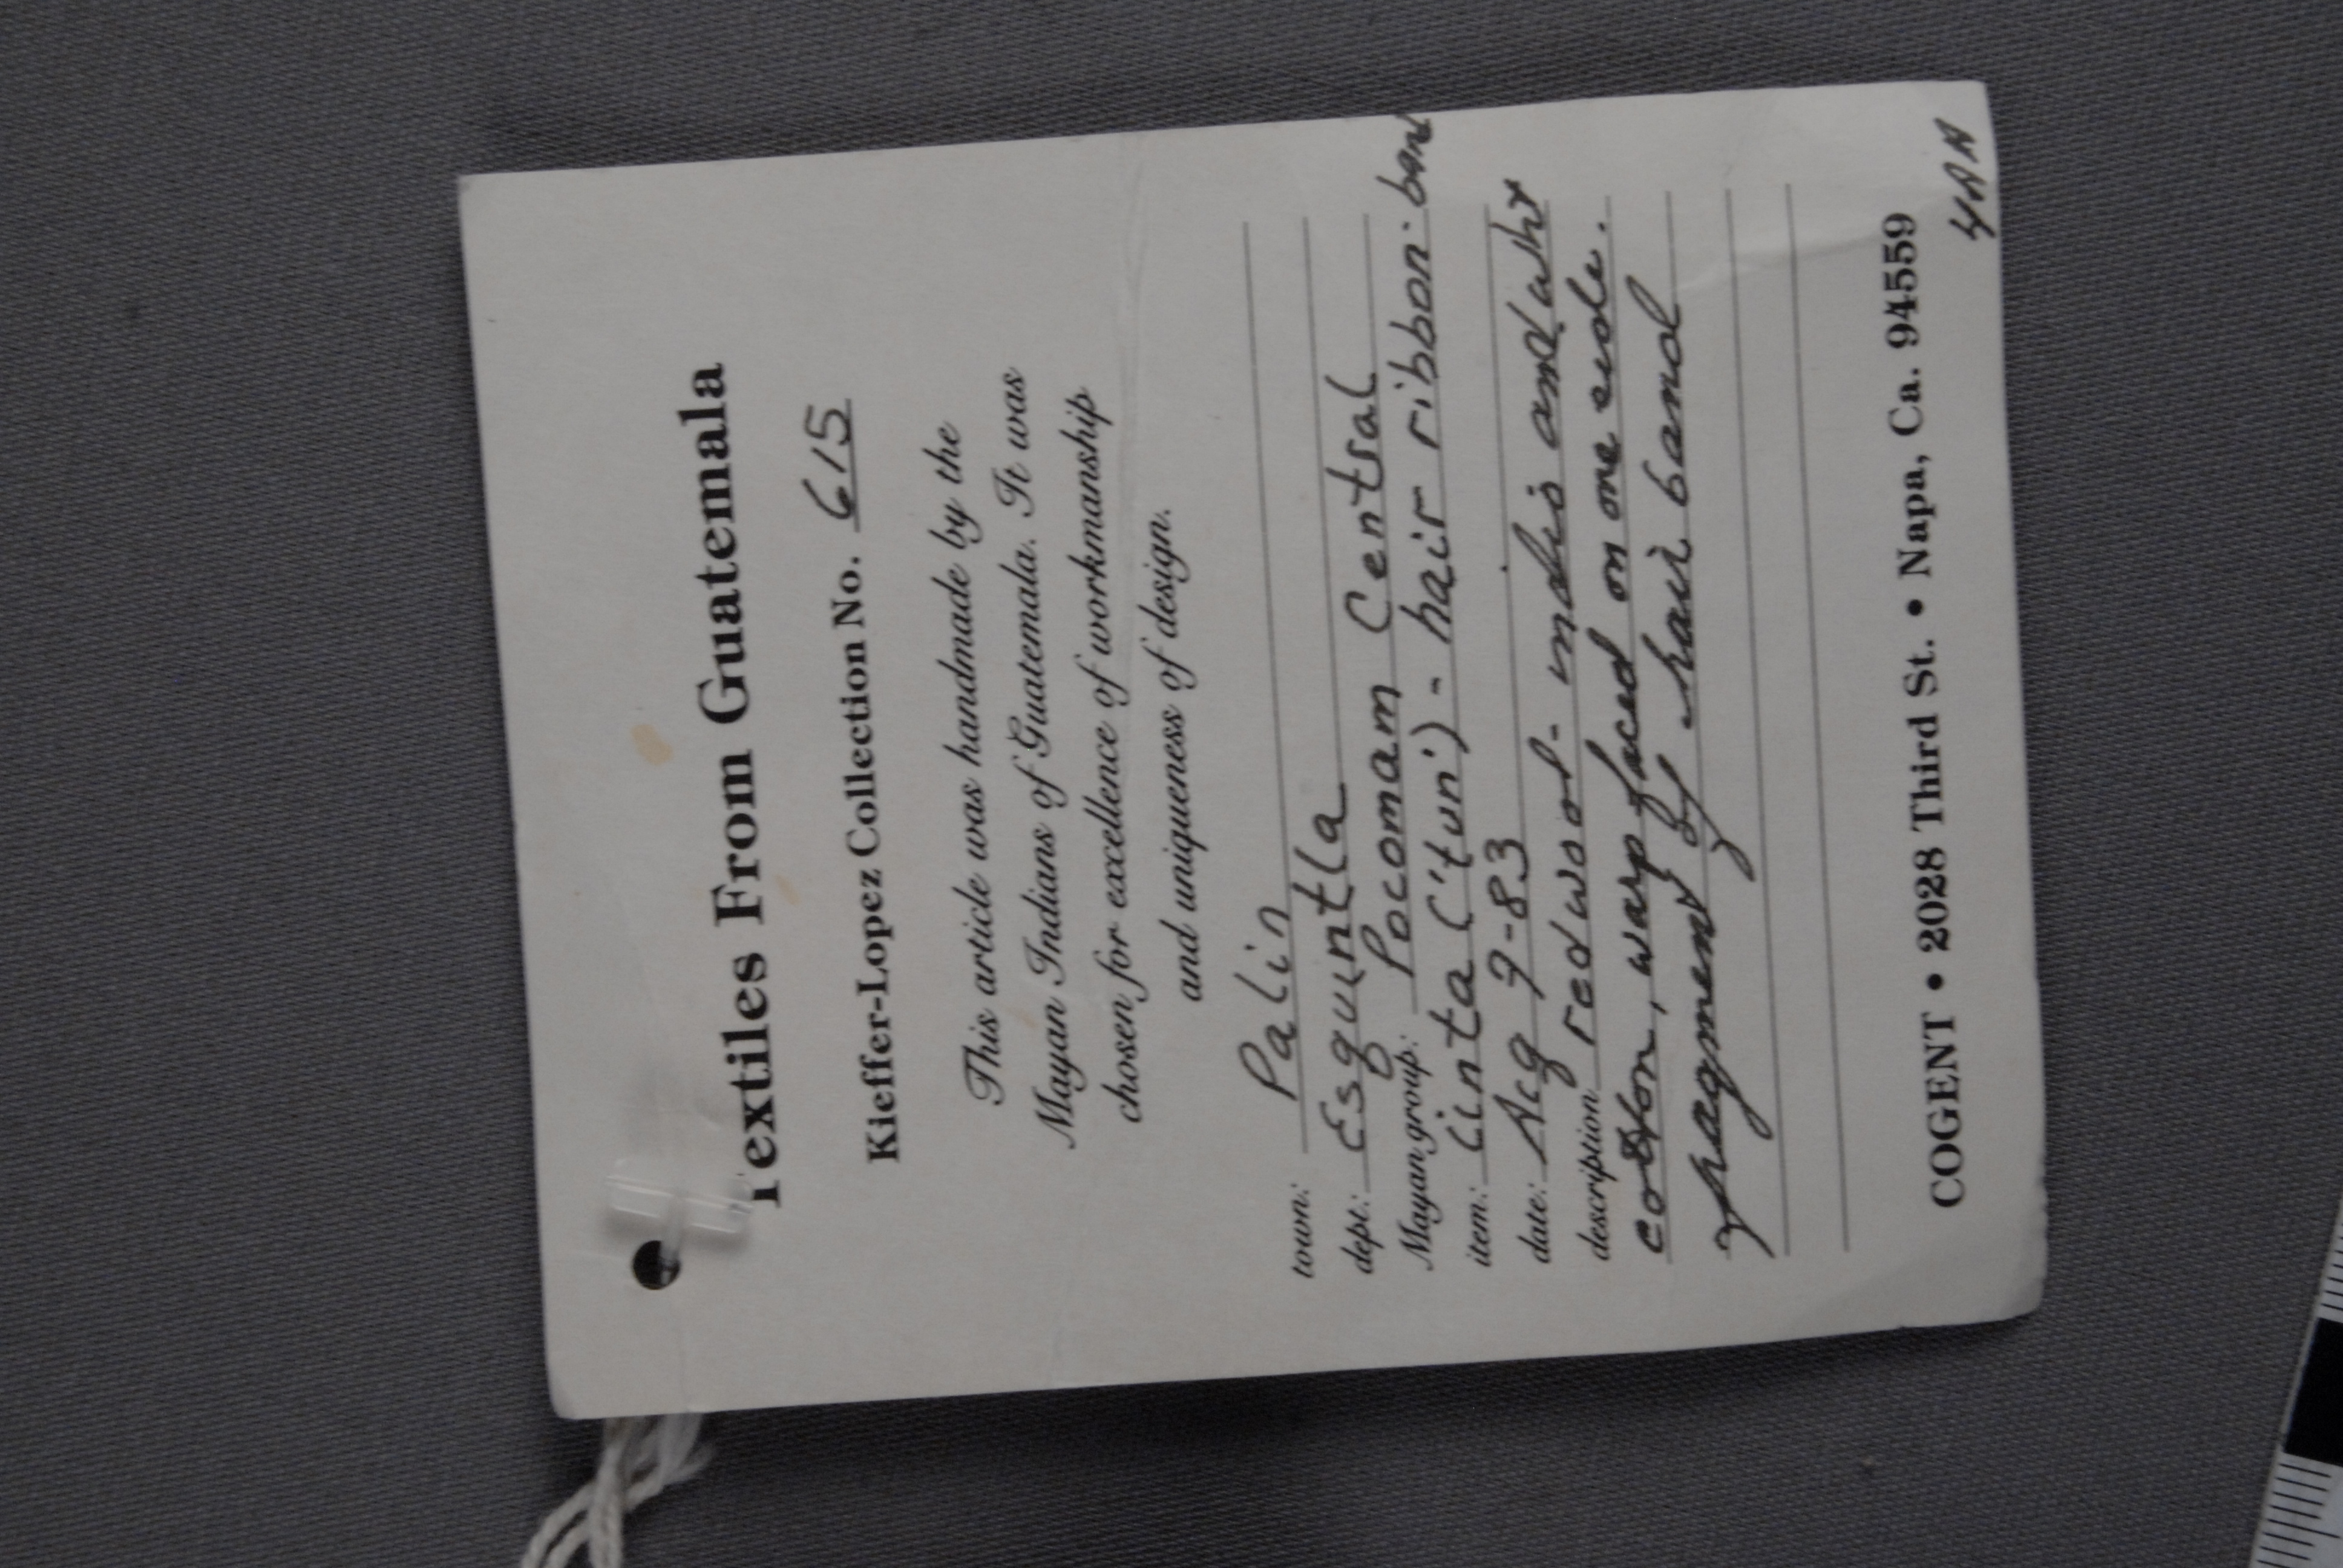 Textiles From Guatemala
Kieffer-Lopez Collection No. 615
This article was handmade by the
Mayan Indians of Guatemala. It was
chosen for excellence of workmanship
and uniqueness of design.
town: Palin
dept.: Esquintla
Mayan group: Pocomam Central
item: Cinta ('tun') - hair ribbon - band
date: Acq 7-83
description red wool - indio and wht
cotton, warp faced on one side.
fragment of hair band
COGENT • 2028 Third St. • Napa, Ca. 94559